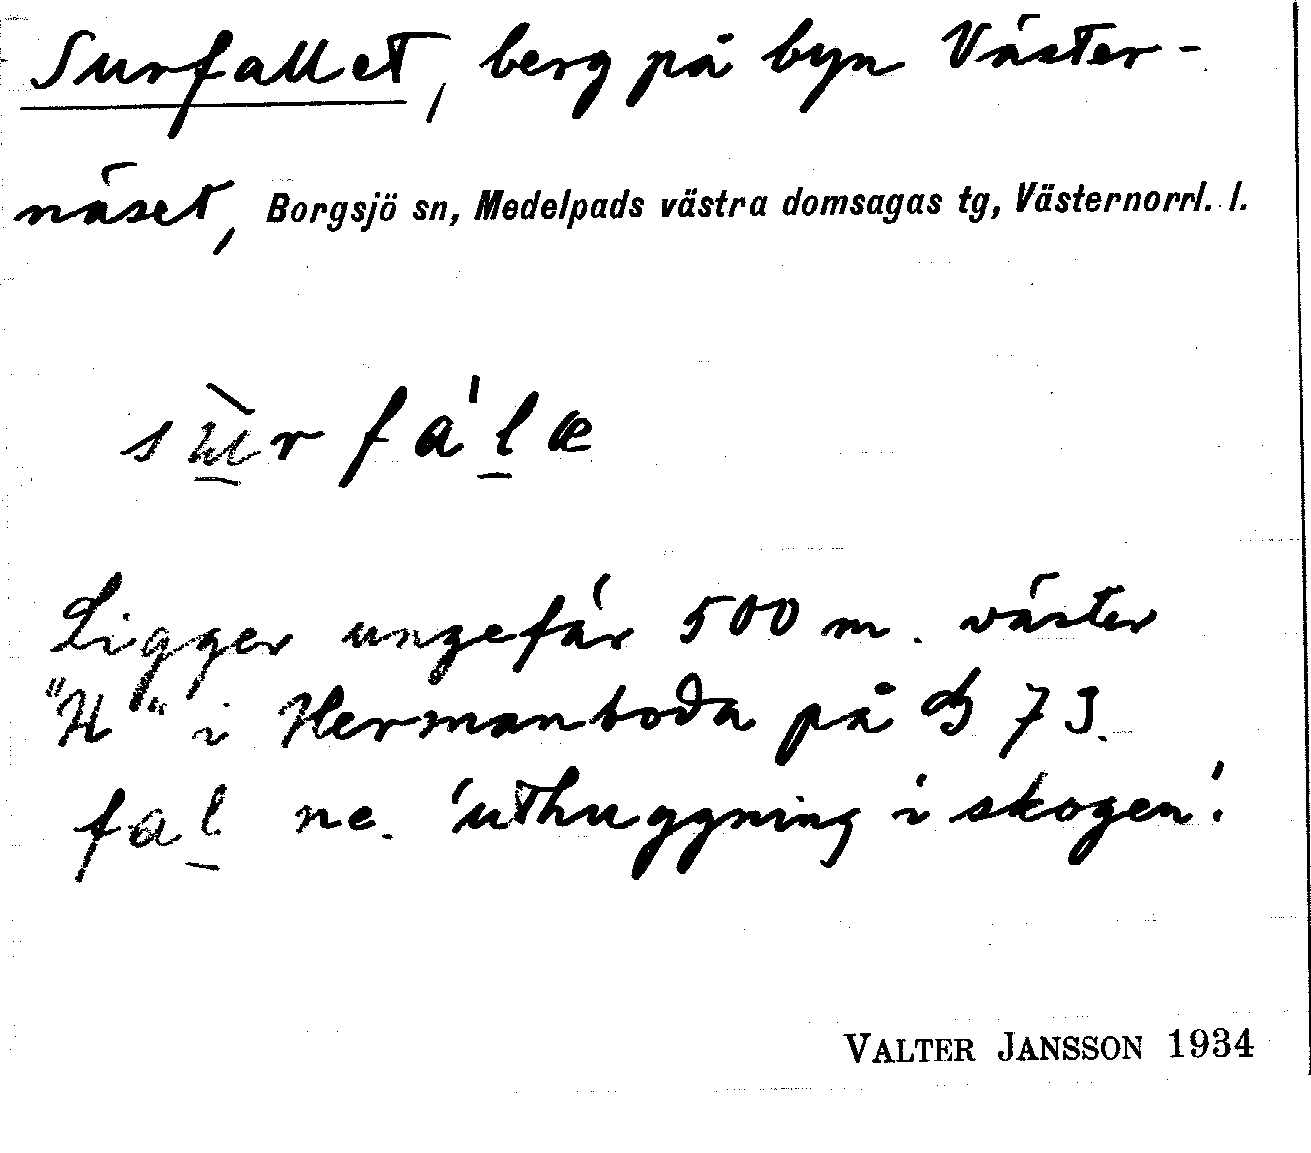 Surfallet, berg på byn Väster-
näset, Borgsjö sn, Medelpads västra domsagas tg, Västernorrl. l.
sùrfa'læ
Ligger ungefär 500 m. väster
"H" i Hermanboda på GB 73.
fal ne. 'uthuggning i skogen'.
VALTER JANSSON 1934